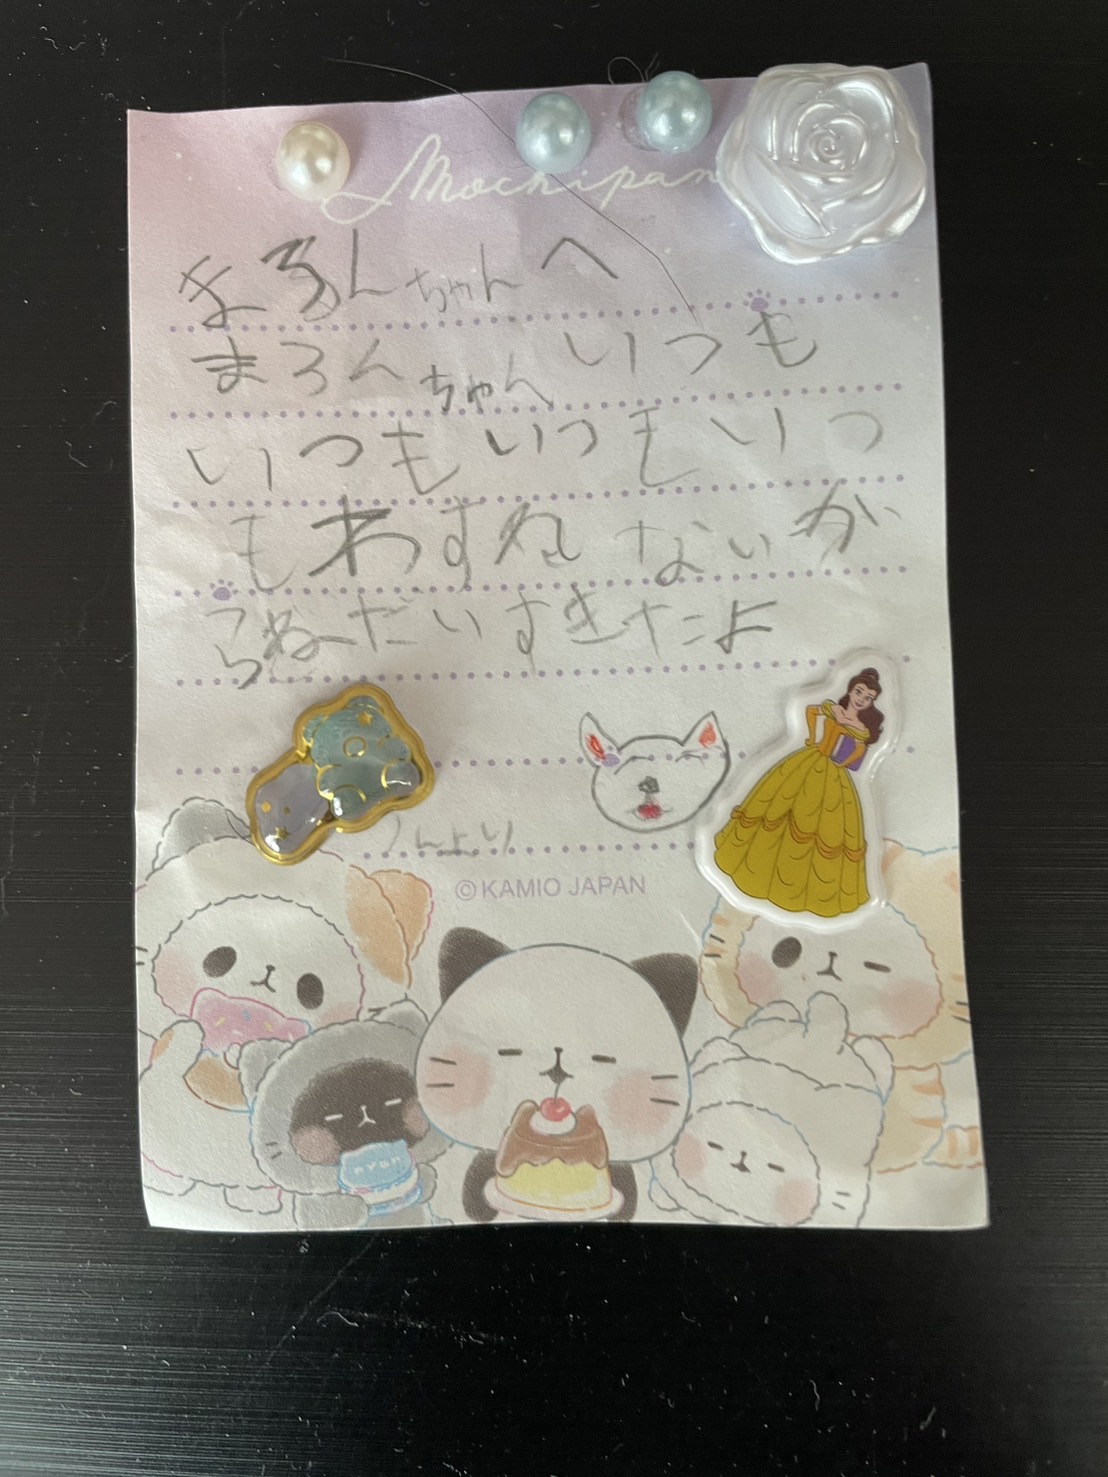 Mochipan
まろんちゃんへ
まろんちゃんいつも
いつもいつもいつ
もわすれないか
らねーだいすきだよ
んより
©KAMIO JAPAN
nyan